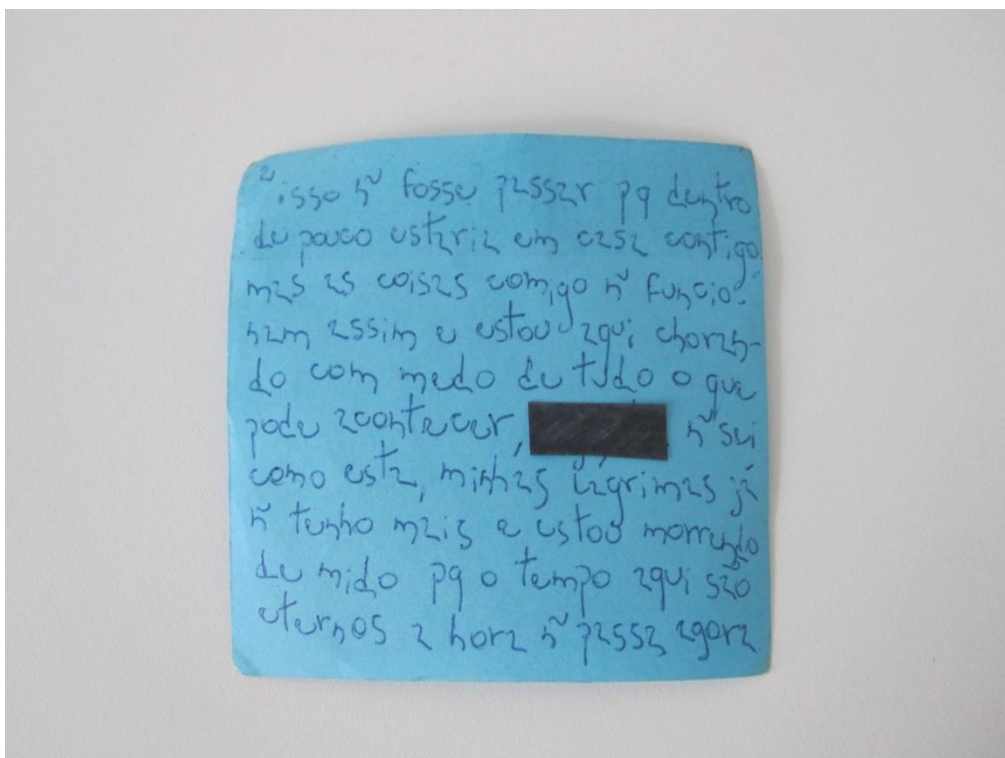 2 isso ñ fosse passar pq dentro
de pouco estaria em casa contigo.
mas as coisas comigo ñ funcio-
nam assim e estou aqui choran-
do com medo de tudo o que
pode acontecer, ñ sei
como esta, minhas lagrimas já
ñ tenho mais e estou morrendo
de mido pq o tempo aqui são
eternos a hora ñ passa agora